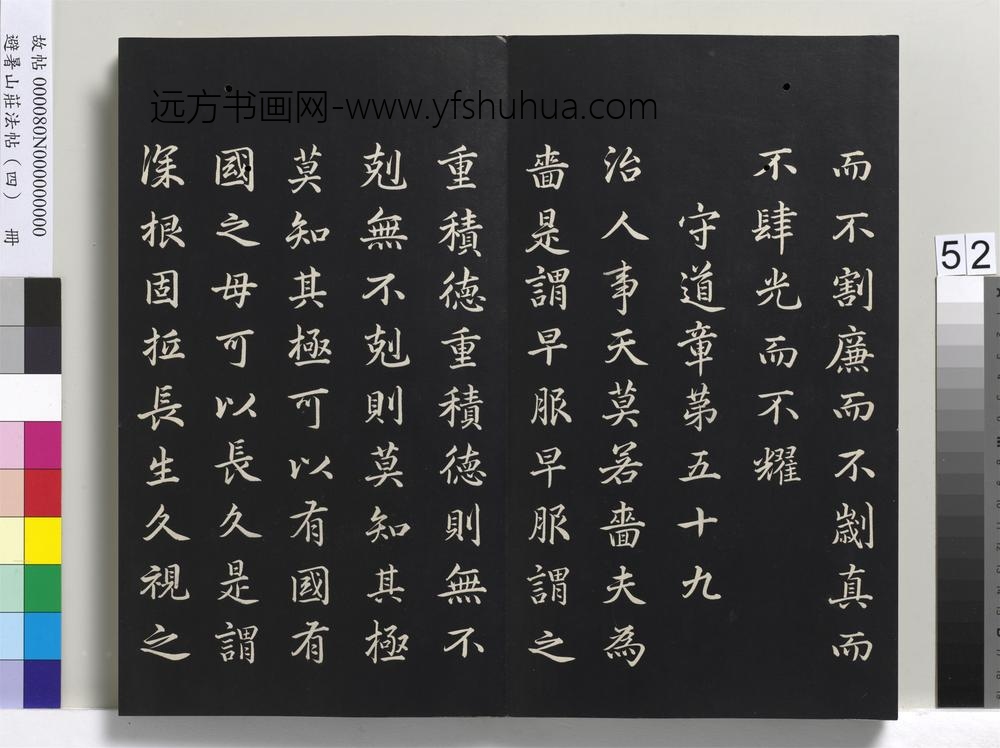 远方书画网-www.yfshuhua.com
而不割廉而不劌真而
不肆光而不耀
守道章第五十九
治人事天莫若嗇夫為
嗇是謂早服早服謂之
重積德重積德則無不
剋無不剋則莫知其極
莫知其極可以有國有
國之母可以長久是謂
深根固柢長生久視之
故帖 000080N000000000
避暑山莊法帖(四) 冊
52